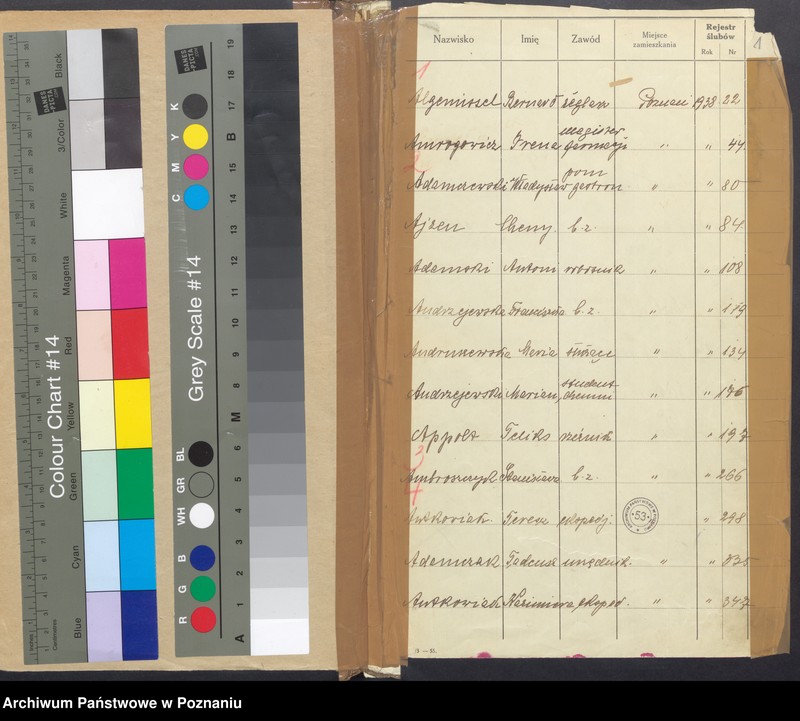 Nazwisko Imię Zawód Miejsce zamieszkania Rejestr ślubów Rok Nr
1
1
Poznań 1938 22
Amrogowicz Irena magister farmacji " " 44
2
Adamczewski Władysław pom gastron. " " 80
Ajzen b.z. " " 84
Adamski Antoni woźnica " " 108
Andrzejewska Franciszka b.z. " " 119
Andruszewska Maria służąca " " 134
Andrzejewski Marian student chemii " " 176
Appolt Feliks rzeźnik " " 197
3
Ambroszczyk Stanisława b.z. " 266
4
Antkowiak Teresa ekspedj. " 298
Adamczak Tadeusz urzędnik. " " 335
Antkowiak Kazimiera eksped. " " 347
53
Colour Chart #14
Black
3/Color
White
Magenta
Red
Yellow
Green
Cyan
Blue
Inches
Centimetres
DANES PICTA .COM
Grey Scale #14
DANES PICTA .COM
K Y M C
BL GR WH
B G R
A 1 2 3 4 5 6 M 8 9 10 11 12 13 14 15 B 17 18 19
Archiwum Państwowe w Poznaniu